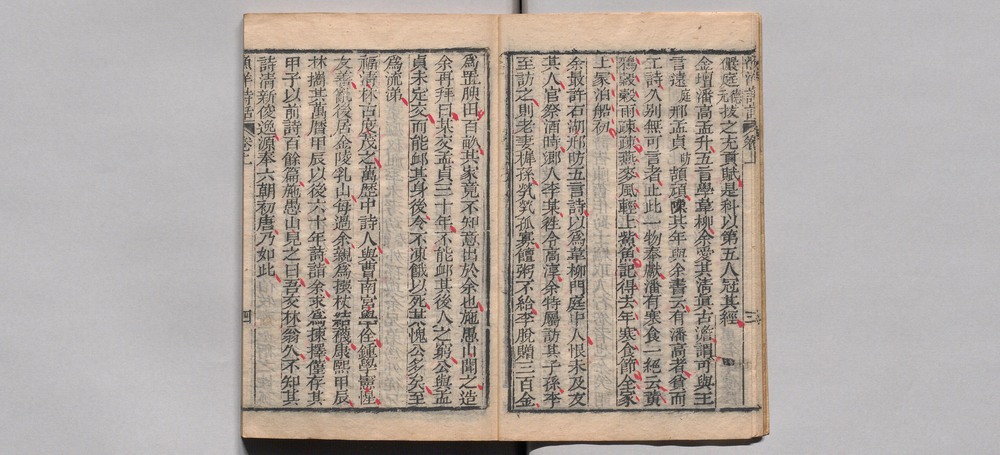 漁洋詩話 卷上 三
儼庭元德技之尤貢賦是科以第五人冠其經
金壇潘高孟升五言學韋柳余愛其清眞古澹謂可與王
言遠庭邢孟貞昉頡頏陳其年與余書云有潘高者貧而
工詩久別無可言者止此一物奉獻潘有寒食一絕云黃
鶉縠縠雨疎疎燕麥風輕上紫魚記得去年寒食節全家
上冢泊船初
余最許石湖邢昉五言詩以爲韋柳門庭中人恨未及友
其人官祭酒時鄉人李某往令高淳余特屬訪其子孫李
至訪之則老妻稺孫煢煢孤寡饘粥不給李脫贈三百金
爲置腴田百畝其家竟不知意出於余也施愚山聞之造
余再拜曰某交孟貞三十年不能卹其後人之窮公與孟
貞未定交而能卹其身後令不凍餓以死某愧公多矣至
爲流涕
福清林古度茂之萬歷中詩人與曹南宮學佺鍾學憲惺
友善亂後居金陵乳山每過余親爲撰杖結襪康熙甲辰
林攜其萬曆甲辰以後六十年詩請余求爲揀擇僅存其
甲子以前詩百餘篇施愚山見之曰吾交林翁久不知其
詩清新俊逸源奉六朝初唐乃如此
漁洋詩話 卷上 四